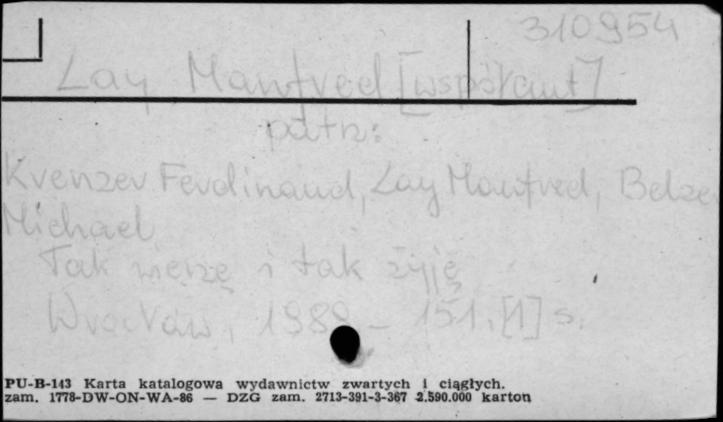 310954
Lay Manfred [współaut]
patrz:
Krenzer Ferdinand, Lay Manfred, Belzer
Michael
Tak wierzę i tak żyję
Wrocław, 1989 – 151, [1] s.
PU-B-143 Karta katalogowa wydawnictw zwartych i ciągłych.
zam. 1778-DW-ON-WA-86 — DZG zam. 2713-391-3-367 2.590.000 karton